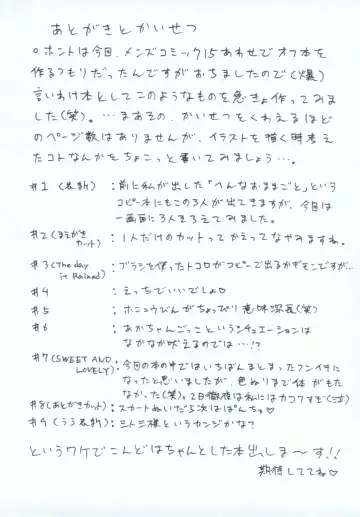 あとがきとかいせつ
○ホントは今回、メンズコミック15あわせでオフ本を
作るつもりだったんですがおちましたので(爆)
言いわけ本としてこのようなものを急きょ作ってみま
した(笑)。…まあその、かいせつをくわえるほど
のページ数はありませんが、イラストを描く時考え
たコトなんかをちょこっと書いてみましょう…。
#1 (表紙) : 前に私が出した「へんなおままごと」という
コピー本にもこの3人が出てきますが、今回は
一画面に3人そろえてみました。
#2 (まえがきカット) : 1人だけのカットってかえってなやみますね。
#3 (The day it Rained) : ブラシを使ったトコロがコピーで出るかギモンですが…
#4 : えっちでいいでしょ♡
#5 : ホニュウびんがちょっぴり意味深長(笑)
#6 : あかちゃんごっこというシチュエーションは
なかなか吠えるのでは…!?
#7 (SWEET AND LOVELY) : 今回の本の中ではいちばんまとまったフンイキに
なったと思いましたが、色ぬりまで体がもた
なかった(笑)。2日徹夜は私にはカコクすぎ
#8 (あとがきカット) : スカートぬいだら次はぱんちゅ♡
#9 (うら表紙) : ミトミ様というカンジかな?
というワケでこんどはちゃんとした本出っしま〜す!!
期待しててね♡